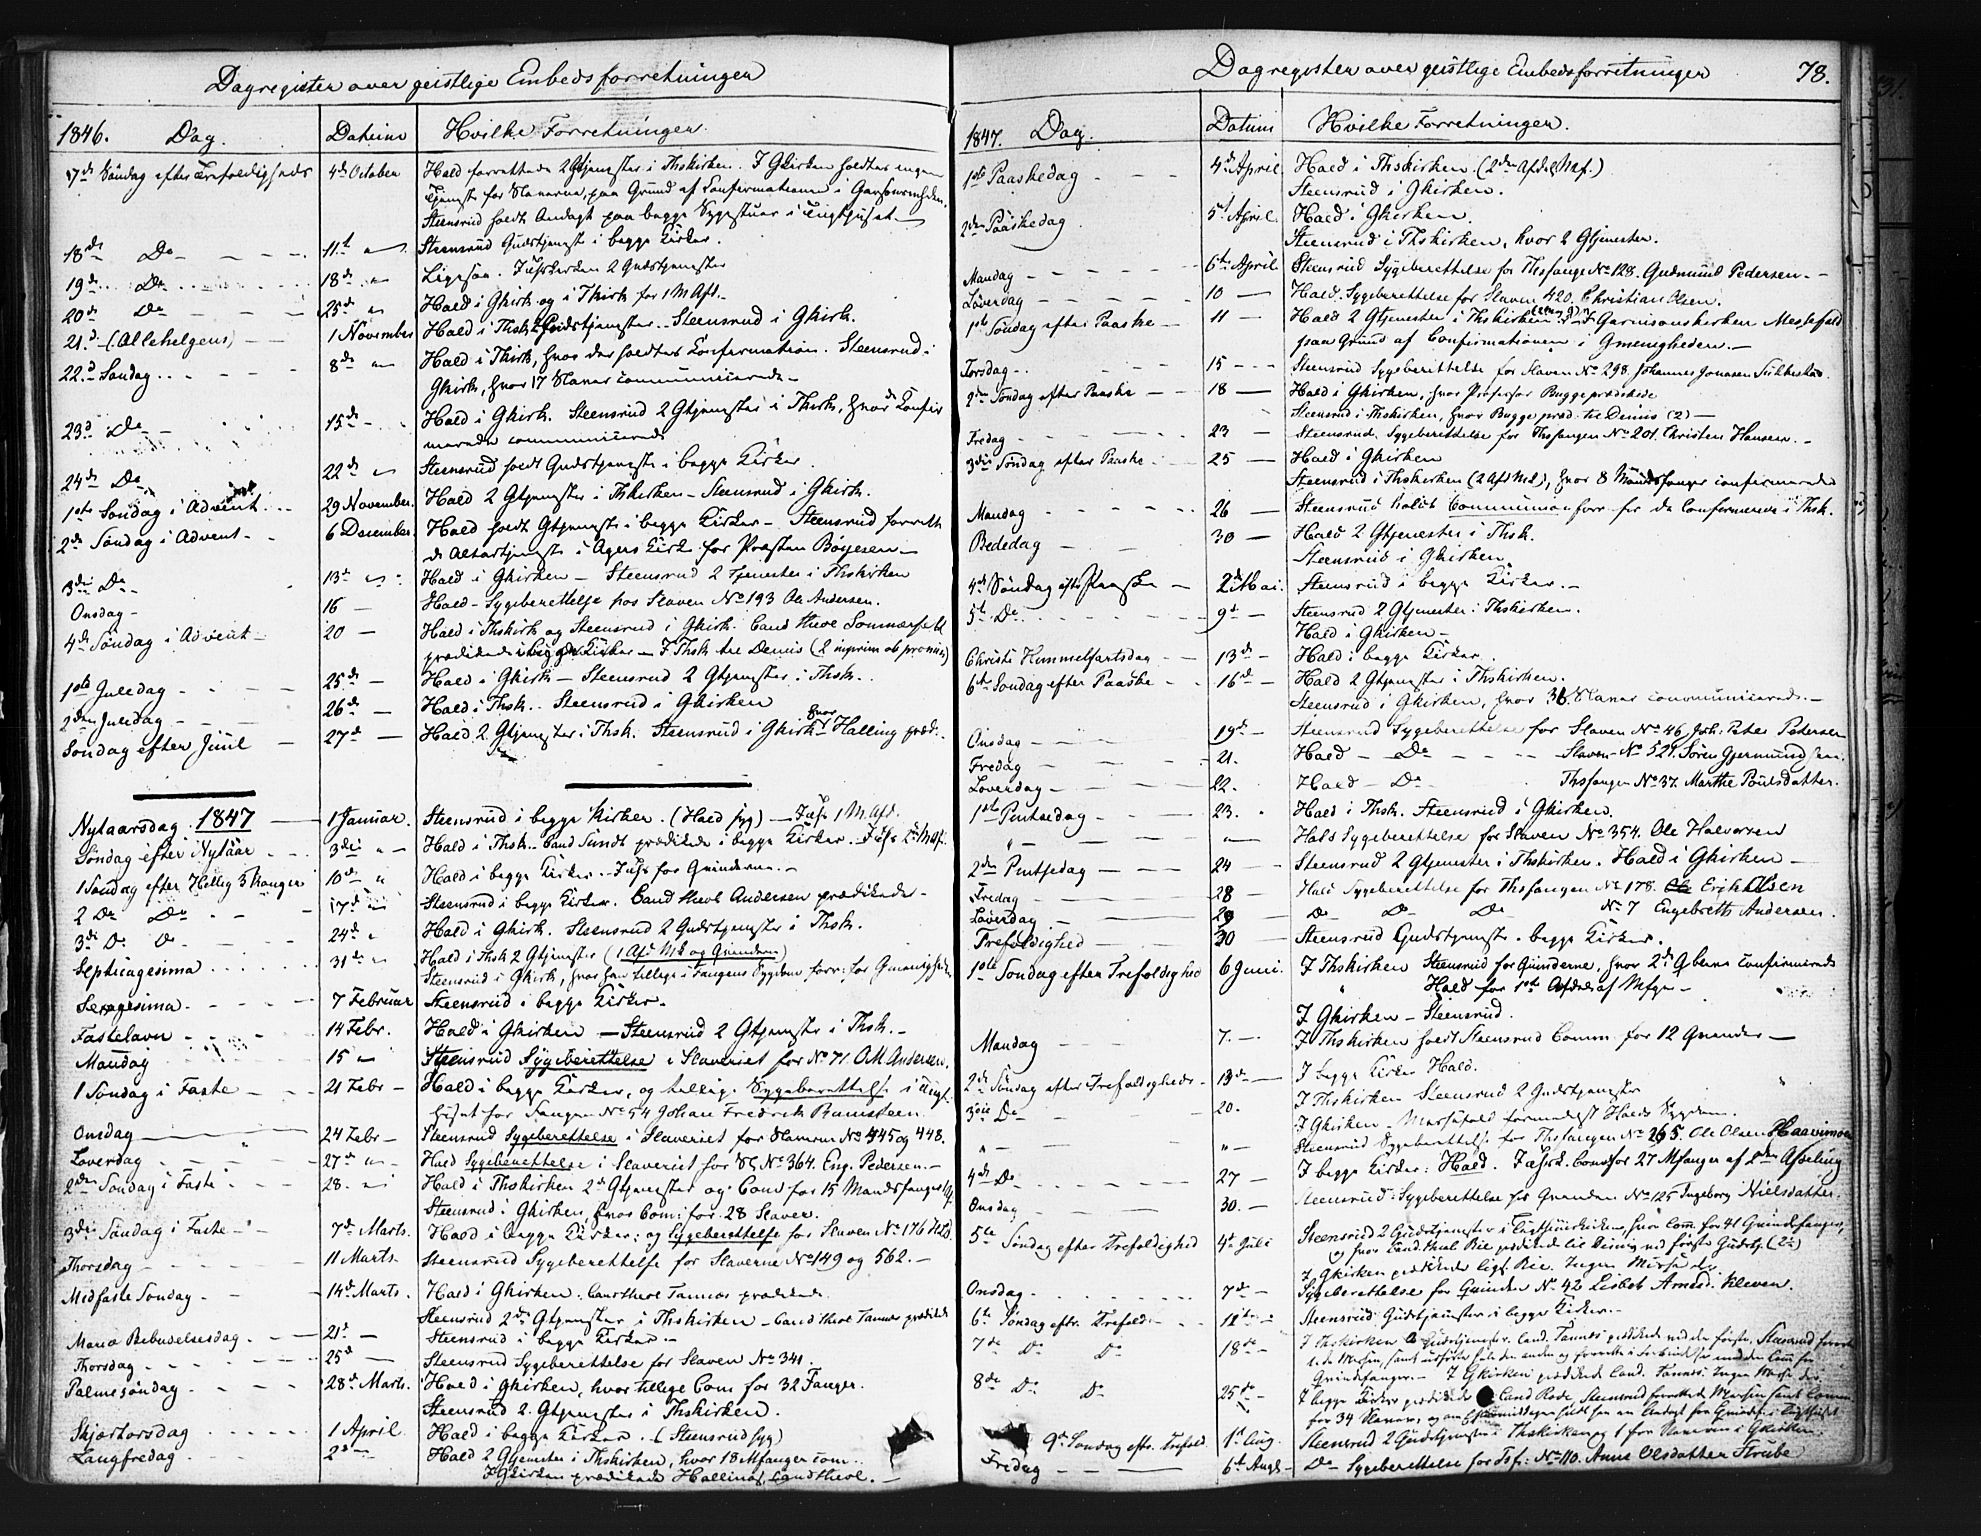 Dagregister over geistlige Embedsforretninger
1846. Dag. Datum Hvilke Forretninger.
17de Søndag efter Trefoldigheds 4de October Hald forrettede 2 Gtjenester i Thskirken. I Gkirken holdtes ingen
Tjeneste for Slaverne, paa Grund af Confirmationen i
Steensrud holdt Andagt paa begge Sygestuer i Tugthuset
18de Do 11te " Steensrud Gudstjeneste i begge Kirker.
19de Do 18de " Ligesaa. I Thskirken 2 Gudstjenester
20de Do 25de " Hald i Gkirk og i Thkirk for 1 M Afd.
21d (Allehelgens) 1 November Hald i Thsk 2 Gudstjenester. Steensrud i Gkirk.
22d Søndag 8de " Hald i Thkirk, hvor der holdtes Confirmation. Steensrud i
Gkirk, hvor 17 Slaver communicerede
23d Do 15de Hald i Gkirk. Steensrud 2 Gtjenester i Thkirk, hvor de Confir
merede communicerede
24de Do 22de " Steensrud holdt Gudstjeneste i begge Kirker.
1ste Søndag i Advent 29 November. Hald 2 Gtjenester i Thkirken – Steensrud i Gkirk.
2de Søndag i Advent 6 December. Hald holdt Gtjeneste i begge Kirker – Steensrud forrett
de Altartjeneste i Agers Kirke for Præsten Böyesen
3die Do 13de " Hald i Gkirken – Steensrud 2 Tjenester i Thskirken
Onsdag 16 – Hald – Sygeberettelse hos Slaven No 193 Ole Andersen.
4de Søndag i Advent 20 – Hald i Thskirk og Steensrud i Gkirk. Cand theol Sommerfeldt
prædikede i begge Kirker – I Thsk tre Dennis
1ste Juledag 25de – Hald i Gkirk – Steensrud 2 Gtjenester i Thsk.
2den Juledag 26de – Hald i Thsk. Steensrud i Gkirken
Søndag efter Juul 27de – Hald 2 Gtjenester i Thsk. Steensrud i Gkirk hvor Halling præd.
Nytaarsdag 1847 1 Januar. Steensrud i begge Kirker. (Hald syg) – I Thsk 1 M. Afd.
Søndag efter Nytaar 3die " Hald i Thsk. Cand Sundt prædikede i begge Kirker.
1 Søndag efter Hellig 3 Konger 10de " Hald i begge Kirker. I Thsk for Qvinderne.
2 Do Do 17de Steensrud i begge Kirker. Cand theol Andersen prædikede.
3de Do Do 24de " Hald i Gkirk. Steensrud 2 Gudstjenester i Thsk.
Septuagesima 31de " Hald i Thsk 2 Gtjenester (1 Afd Mk og Qvinderne)
Steensrud i Gkirk, hvor han tillige i Fangens Sygdom forr: for Gmenigheden
Sexagesima 7 Februar Steensrud i begge Kirker.
Fastelavn 14 Febr. Hald i Gkirken – Steensrud 2 Gtjenester i Thsk.
Mandag 15 " Steensrud Sygeberettelse i Slaveriet for No 71. O. M. Andersen.
1 Søndag i Faste 21 Febr Hald i begge Kirker, og tillige Sygeberettelse i Tugt-
huset for Fangen No 54 Johan Fredrik Bumsteen.
Onsdag 24 Febr Steensrud Sygeberettelse i Slaveriet for Slaverne No 445 og 448.
Løverdag 27de " Hald Sygeberettelse i Slaveriet for Sl No 364. Eng. Pedersen.
2den Søndag i Faste 28. Hald i Thskirken 2 Gtjenester og Com for 15 Mandsfanger
Steensrud i Gkirken hvor Com: for 28 Slaver.
3die Søndag i Faste 7de Marts. Hald i begge Kirker; og Sygeberettelse for Slaven No 176
Thorsdag 11 Marts. Steensrud Sygeberettelse for Slaverne No 149 og 562.
Midfaste Søndag 14de Marts. Hald i Gkirken. Cand theol Tannes prædikede.
Steensrud 2de Gtjenester i Thskirken – Cand theol Tannes prædikede
Maria Bebudelsesdag 21de – Steensrud i begge Kirker.
Thorsdag 25de – Steensrud Sygeberettelse for Slaven No 341.
Palmesøndag 28de Marts. Hald i Gkirken, hvor tillige Com for 32 Fanger.
Steensrud 2. Gtjenester i Thskirken.
Skjærtorsdag 1 April Hald i begge Kirker. (Steensrud syg)
Langfredag 2de Hald 2 Gtjenester i Thskirken, hvor 18 Mfanger com.
I Gkirken prædikede Halling, Cand theol.
Dagregister over geistlige Embedsforretninger 78.
1847. Dag. Datum Hvilke Forretninger.
1ste Paaskedag 4de April Hald i Thskirken. (2den Afdel Maf.)
Steensrud i Gkirken.
2den Paaskedag 5te April. Hald i Gkirken.
Steensrud i Thskirken, hvor 2 Gtjenester.
Mandag 6te April Steensrud Sygeberettelse for Thsfange No 128. Gudmund Pedersen
Løverdag 10 – Hald. Sygeberettelse for Slaven 420. Christian Olsen.
1ste Søndag efter Paaske 11 – Hald 2 Gtjenester i Thskirken. I Garnisonskirken Messefald
paa Grund af Confirmationen i Gmenigheden.
Torsdag 15 Steensrud Sygeberettelse for Slaven No 298. Johannes Jonassen
2den Søndag efter Paaske 18 – Hald i Gkirken, hvor Professor Bugge prædikede
Steensrud i Thskirken, hvor Bugge præd. (2)
Fredag 23 – Steensrud. Sygeberettelse for Thsfangen No 201. Christen Hansen.
3die Søndag efter Paaske 25 – Hald i Gkirken
Steensrud i Thskirken, hvor 8 Mandsfanger confirmerede
Mandag 26 – Steensrud holdt Communion for de Confirmerede i Thsk.
Bededag 30 – Hald 2 Gtjenester i Thsk.
Steensrud i Gkirken.
4de Søndag eft. Paaske 2de Mai. Steensrud i begge Kirker.
5te Do 9de Steensrud 2 Gtjenester i Thskirken.
Hald i Gkirken
Christi Himmelfartsdag 13de – Hald i begge Kirker.
6te Søndag efter Paaske 16de – Hald 2 Gtjenester i Thskirken.
Steensrud i Gkirken, hvor 36 Slaver communicerede.
Onsdag 19de – Steensrud Sygeberettelse for Slaven No 46 Joh. Peter Petersen
Fredag 21. Hald – Do Slaven No 521. Søren Gjermundsen.
Løverdag 22. Hald – Do Thsfangen No 37. Marthe Poulsdatter.
1ste Pintsedag 23. Hald i Thsk. Steensrud i Gkirken.
" " Hald Sygeberettelse for Slaven No 354. Ole Halvorsen
2den Pintsedag 24 – Steensrud 2 Gtjenester i Thskirken. Hald i Gkirken
Fredag 28 – Hald Sygeberettelse for Thsfangen No 178. Erik Olsen
Løverdag 29 Do Do Do No 7 Engebreth Andersen.
Trefoldighed 30 Steensrud Gudstjeneste i begge Kirker.
1ste Søndag efter Trefoldighed 6 Juni. I Thskirken Steensrud for Qvinderne, hvor 2de Qvinder confirmerede
" Hald for 1ste Afdel af Mfger
I Gkirken – Steensrud.
Mandag 7. I Thskirken holdt Steensrud Comm. for 12 Qvinder
2de Søndag efter Trefoldigheds 13de I begge Kirker Hald.
3die Do 20. I Thskirken Steensrud 2 Gudstjenester
I Gkirken – Messefald formedelst Halds Sygdom.
" " Steensrud Sygeberettelse for Thsfangen No 265. Ole Olsen Haavimoen
4de Do 27 – I begge Kirker: Hald. I Thsk. Com for 27 Mfanger af 2den Afdeling
Onsdag 30. – Steensrud: Sygeberettelse for Qvinden No 125 Ingeborg Nielsdatter.
5te Søndag efter Trefoldighed 4de Juli Steensrud 2 Gudstjenester i Tugthuuskirken, hvor Com. for 41 Qvindefanger,
og hvor Cand. theol Rie prædikede
I Gkirken prædikede ligl. Rie. Ingen Messe
Onsdag 7de – Sygeberettelse for Qvinden No 42 Lisbet Arnesd. Kleven.
6te Søndag eftr. Trefold. 11te Steensrud Gudstjenester i begge Kirker.
7de Do Do 18de I Thskirken 2 Gudstjenester. Cand. Tannes prædikede ved den første, Steensrud
Qvindefanger. – I Gkirken prædikede Cand. Tannes. Ingen Messe
8de Do Do 25de I begge Kirker prædikede Cand Rode, Steensrud forrettede Messen samt Comm.
for 34 Slaver, og om Eftermiddagen holdt han en Andagt for Qvindef. i Tugthuset
9de Søndag eftr. Trefold. 1ste Aug. Steensrud 2 Gudstjenester i Thskirken og 1 for Slaverne i Gkirken.
Fredag 6te Augs Do Sygeberettelse for Tsf: No 110. Anne Olsdatter Strube